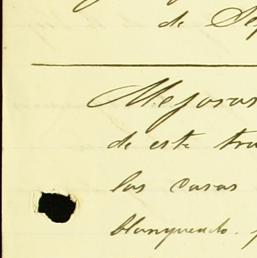 de Sep
Mejoras
de este tra
las casas
blanqueado.